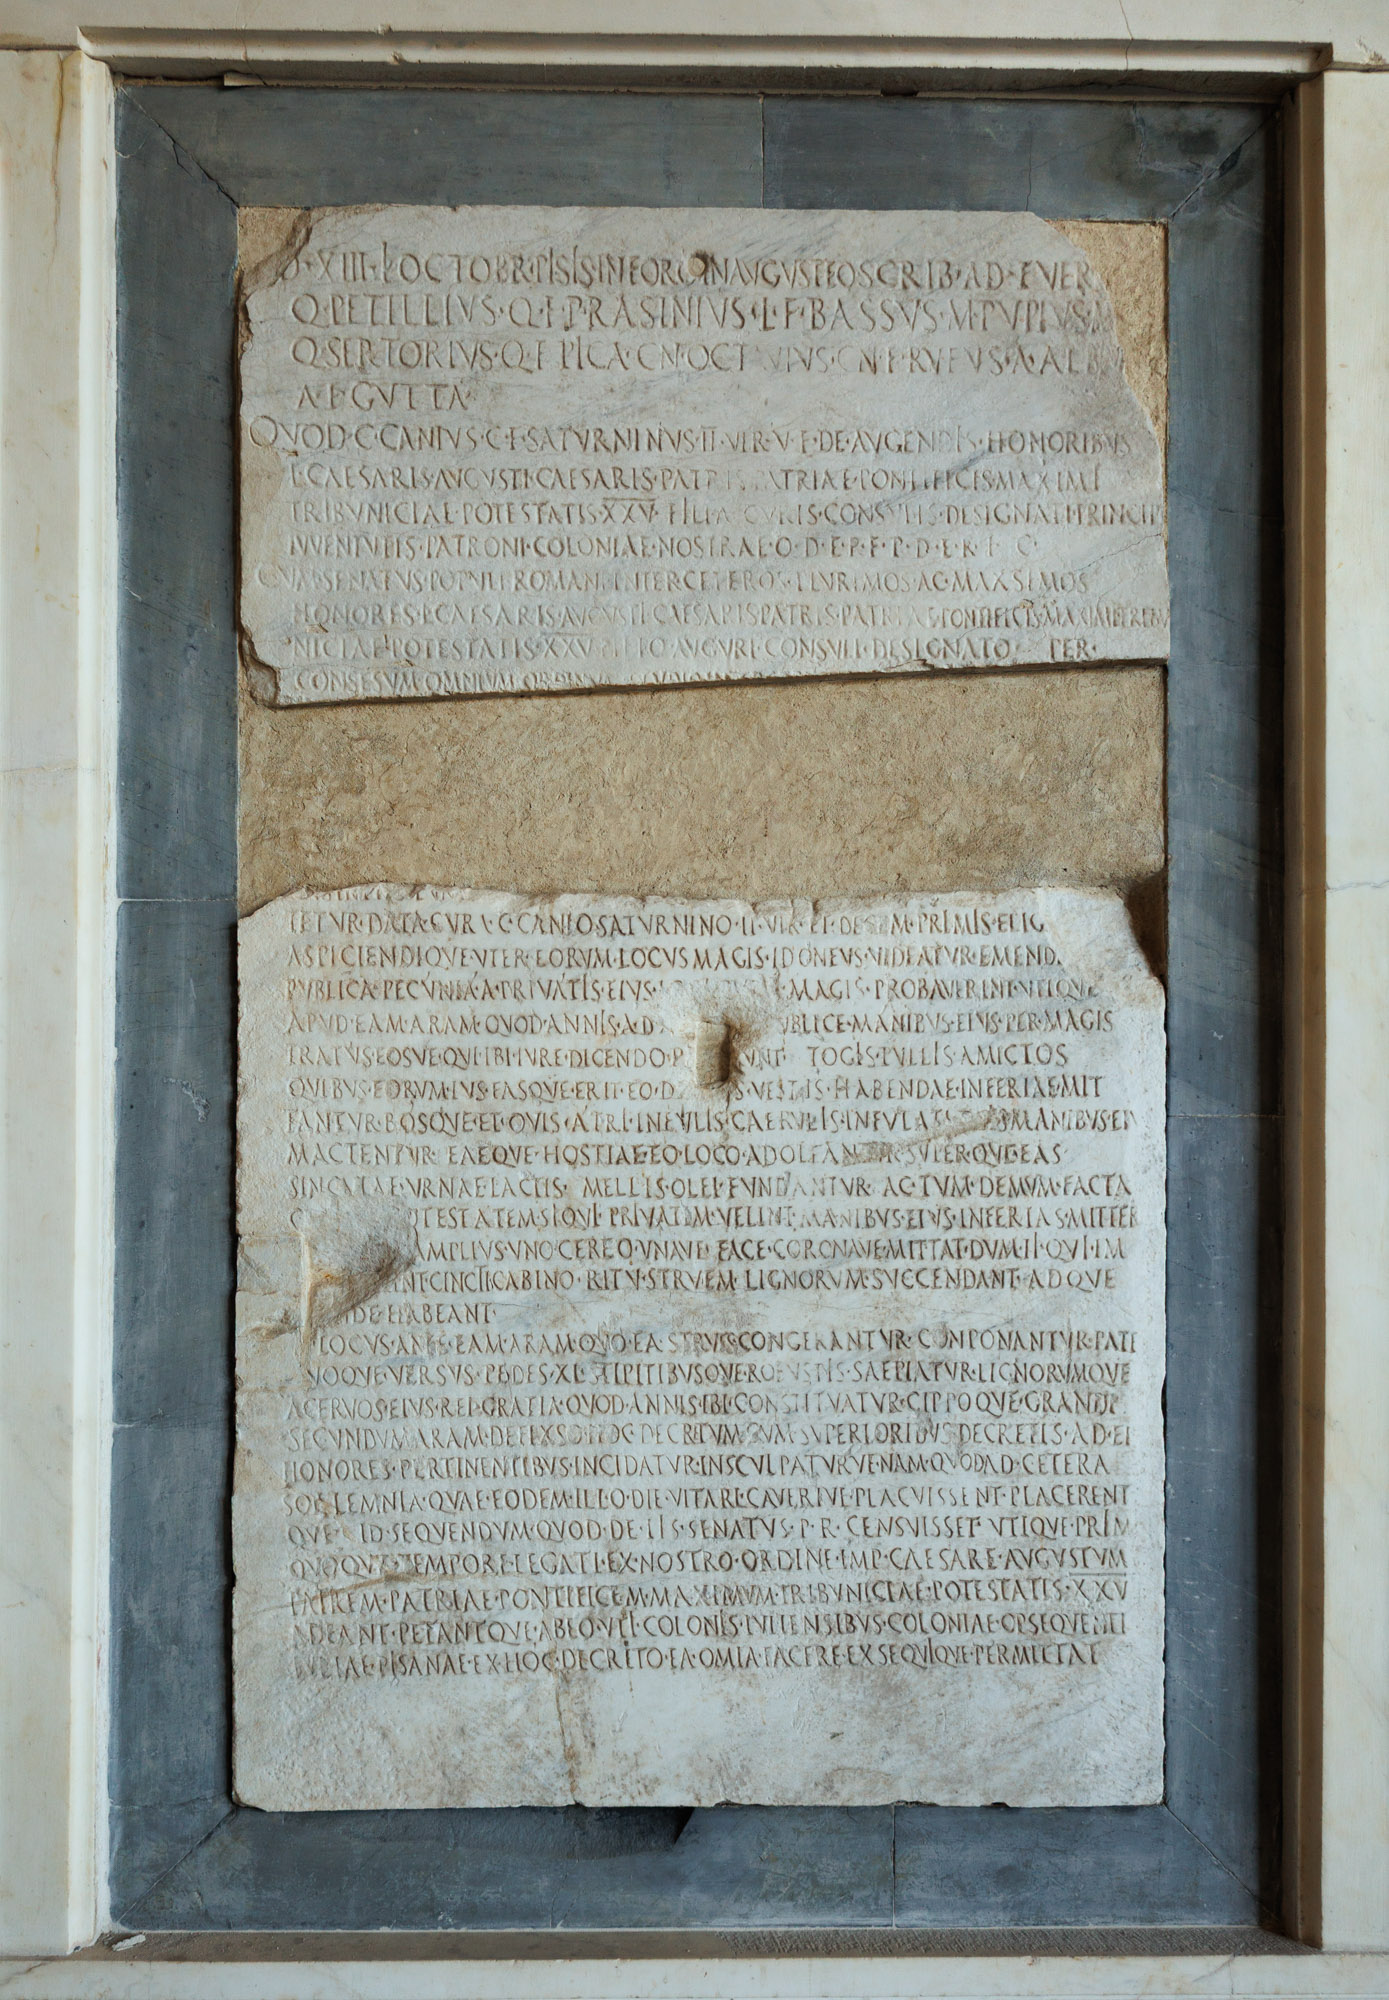 XIII·K·OCTOBR·PISIS·IN·FORO·IN·AVGVSTEO·SCRIB·AD·FVER
Q·PETILLIVS·Q·F·P·RASINIVS·L·F·BASSVS·M·PVPIVS·M
Q·SERTORIVS·Q·F·PICA·CN·OCTAVIVS·CN·F·RVFVS·A·ALB
A·F·GVTTA
QVOD·C·CANIVS·C·F·SATVRNINVS·II·VIR·V·F·DE·AVGENDIS·HONORIBVS
L·CAESARIS·AVGVSTI·CAESARIS·PATRIS·PATRIAE·PONTIFICIS·MAXIMI
TRIBVNICIAE·POTESTATIS·XXV·FILI·AVGVRIS·CONSVLIS·DESIGNATI·PRINCIPIS
IVVENTVTIS·PATRONI·COLONIAE·NOSTRAE·Q·D·E·R·F·P·D·E·R·I·C
CVM·SENATVS·POPVLI·ROMANI·INTER·CETEROS·PLVRIMOS·AC·MAXSIMOS
HONORES·L·CAESARIS·AVGVSTI·CAESARIS·PATRIS·PATRIAE·PONTIFICIS·MAXIMI·TRIBV
NICIAE·POTESTATIS·XXV·FILIO·AVGVRI·CONSVLI·DESIGNATO PER·
CONSESVM·OMNIVM·ORDINVM
TETVR·DATA·CVRA·C·CANIO·SATVRNINO·II·VIR·ET·DECEM·PRIMIS·ELIG
ASPICIENDIQVE·VTER·EORVM·LOCVS·MAGIS·IDONEVS·VIDEATVR·EMEND
PVBLICA·PECVNIA·A·PRIVATIS·EIVS·LOCI·QVEM·MAGIS·PROBAVERINT·VTIQVE
APVD·EAM·ARAM·QVOD·ANNIS·A·D VBLICE·MANIBVS·EIVS·PER·MAGIS
TRATVS·EOSVE·QVI·IBI·IVRE·DICENDO·P VNT TOGIS·PVLLIS·AMICTOS
QVIBVS·EORVM·IVS·FASQVE·ERIT·EO·D VESTIS·HABENDAE·INFERIAE·MIT
TANTVR·BOSQVE·ET·OVIS·ATRI·INFVLIS·CAERVLIS·INFVLATI MANIBVS·EIVS
MACTENTVR EAEQVE·HOSTIAE·EO·LOCO·ADOLEANTVR·SVPER·QVE·EAS·
SINGVLAE·VRNAE·LACTIS· MELLIS·OLEI·FVNDANTVR AC·TVM·DEMVM·FACTA
OTESTATEM·SI·QVI·PRIVATIM·VELINT·MANIBVS·EIVS·INFERIAS·MITTERE
AMPLIVS·VNO·CEREO·VNAVE FACE·CORONAVE·MITTAT·DVM·II·QVI·IM
NT·CINCTI·CABINO·RITV·STRVEM LIGNORVM·SVCCENDANT·ADQVE
DE·HABEANT
LOCVS·ANTE·EAM·ARAM·QVO·EA·STRVES·CONGERANTVR·COMPONANTVR·PATE
QVOQVE·VERSVS·PEDES·XL·STIPITIBVSQVE·ROBVSTIS·SAEPIATVR·LIGNORVMQVE
ACERVOS·EIVS·REI·GRATIA·QVOD·ANNIS·IBI·CONSTITVATVR·CIPPOQVE·GRANDI
SECVNDVM·ARAM·DEFIXSO·HOC·DECRETVM·CVM·SVPERIORIBVS·DECRETIS·AD·EI
HONORES·PERTINENTIBVS·INCIDATVR·INSCVLPATVRVE·NAM·QVOD·AD·CETERA
SOLLEMNIA·QVAE·EODEM·ILLO·DIE·VITARI·CAVERIVE·PLACVISSENT·PLACERENT
QVE ID·SEQVENDVM·QVOD·DE·IIS·SENATVS·P·R·CENSVISSET VTIQVE·PRIM
QVOQVE·TEMPORE·LEGATI·EX·NOSTRO·ORDINE·IMP·CAESARE·AVGVSTVM
PATREM·PATRIAE·PONTIFICEM·MAXIMVM·TRIBVNICIAE·POTESTATIS·XXV
ADEANT·PETANTQVE·AB·EO·VTI·COLONIS·IVLIENSIBVS·COLONIAE·OPSEQVENTI
IVLIAE·PISANAE·EX·HOC·DECRITO·EA·OMIA·FACERE·EXSEQVIQVE·PERMITTAT